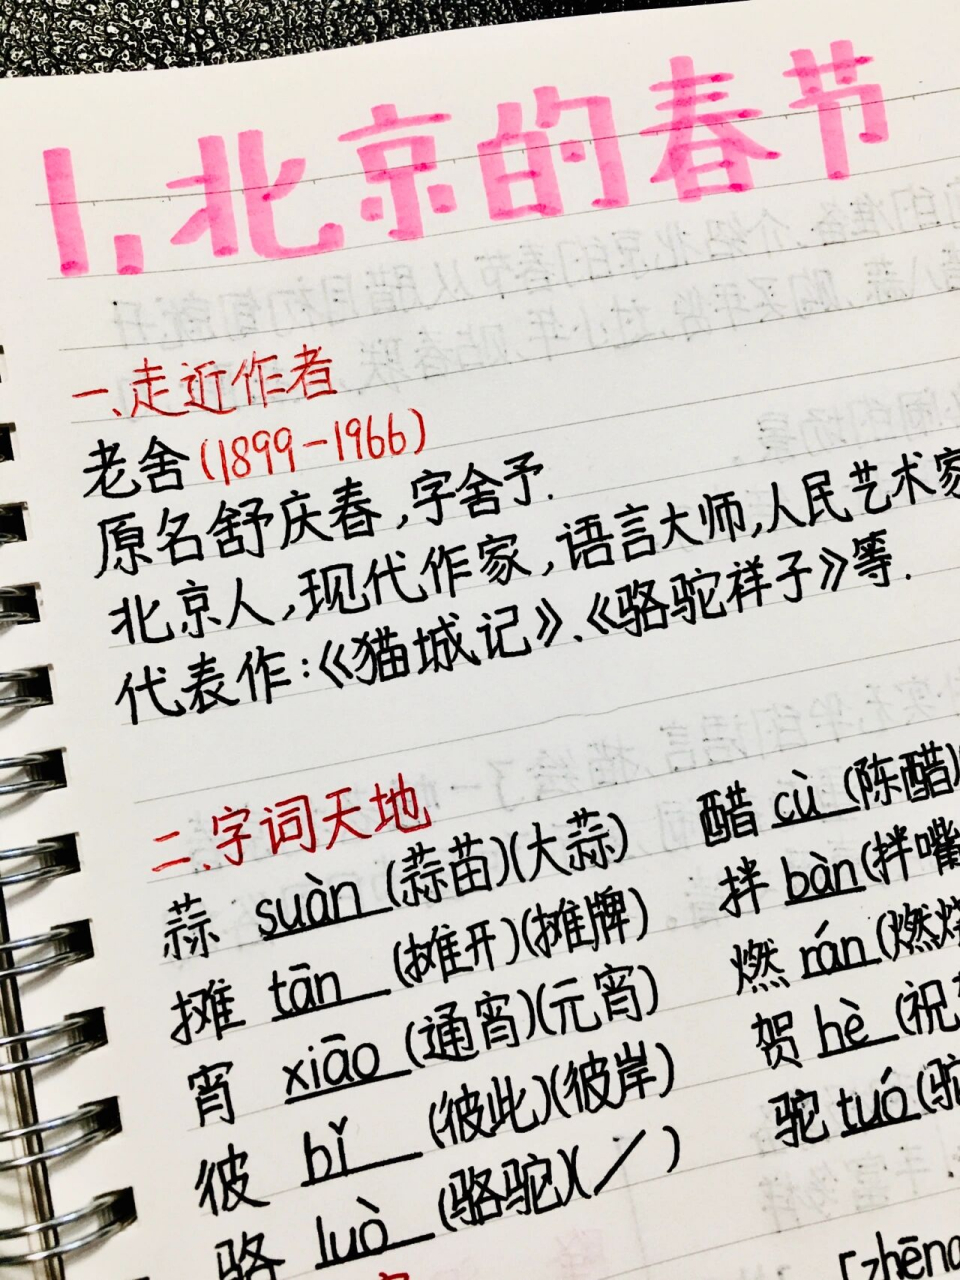 1.北京的春节
一.走近作者
老舍(1899-1966)
原名舒庆春,字舍予.
北京人,现代作家,语言大师,人民艺术家
代表作:《猫城记》、《骆驼祥子》等.
二.字词天地
蒜 suàn (蒜苗)(大蒜) 醋 cù (陈醋)
摊 tān (摊开)(摊牌) 拌 bàn (拌嘴
宵 xiāo (通宵)(元宵) 燃 rán (燃烧
彼 bǐ (彼此)(彼岸) 贺 hè (祝
骆 luò (骆驼)(/) 驼 tuó (驼
zhēng